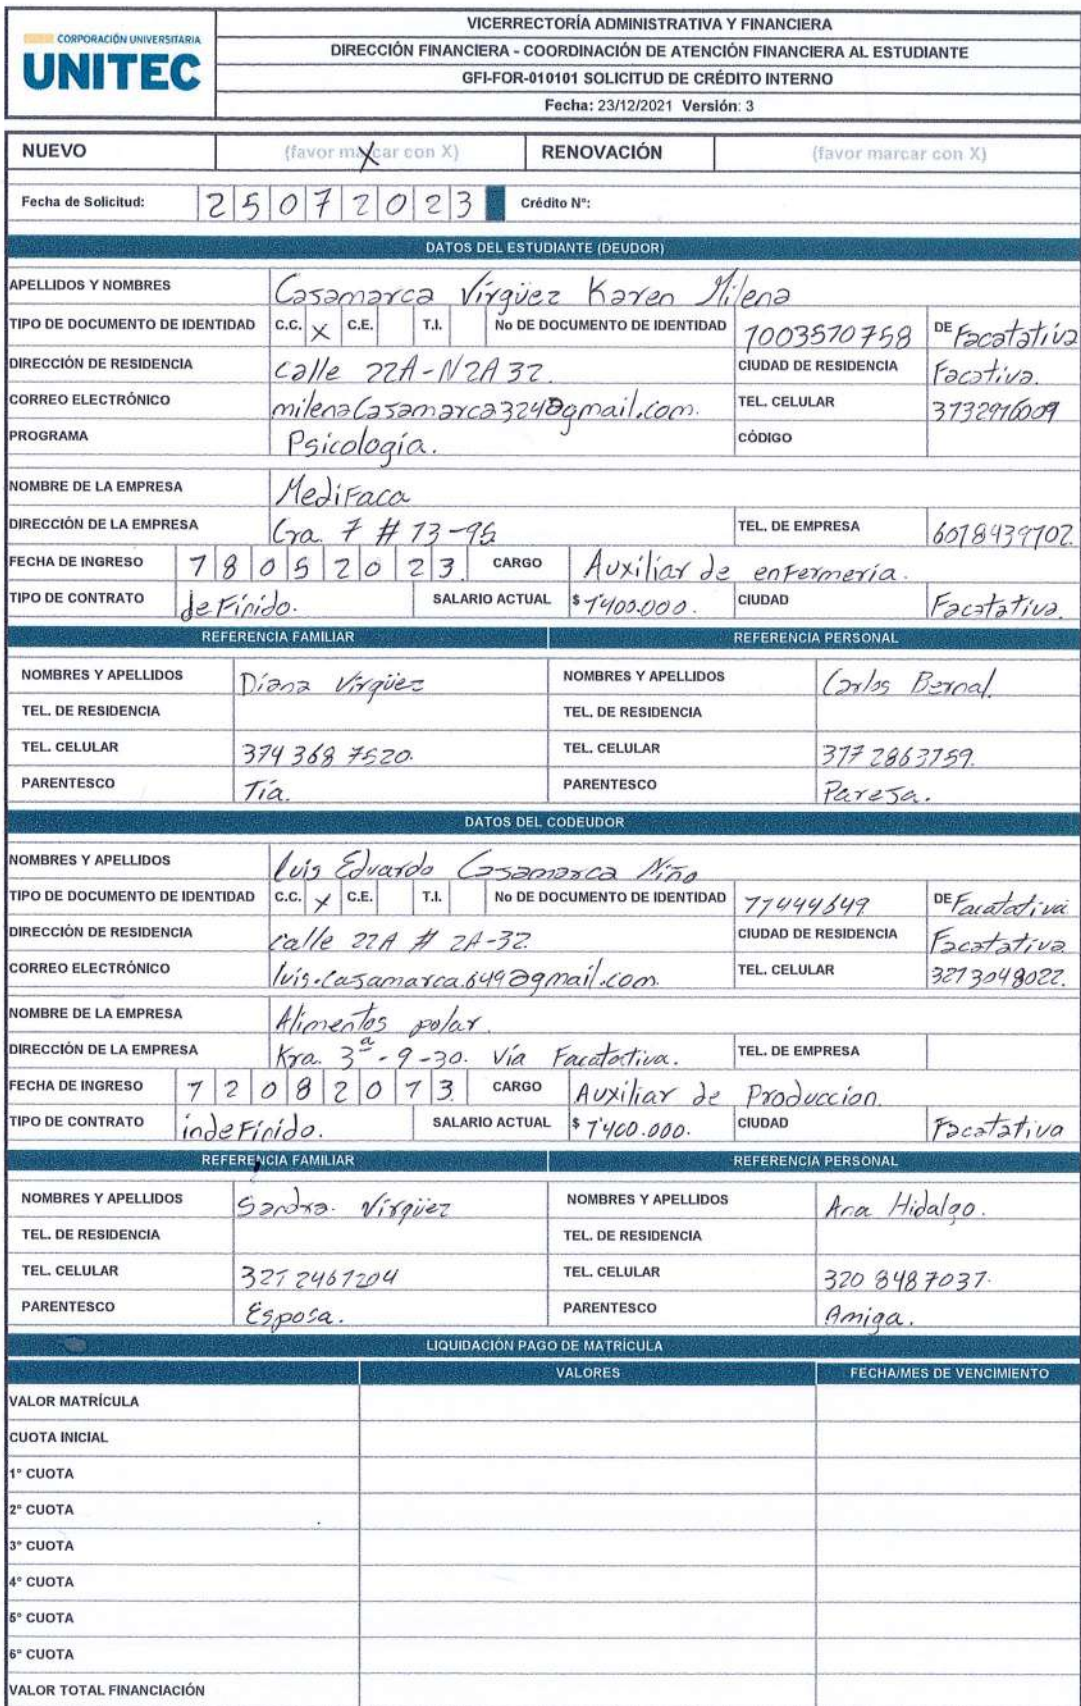 CORPORACIÓN UNIVERSITARIA
UNITEC
VICERRECTORÍA ADMINISTRATIVA Y FINANCIERA
DIRECCIÓN FINANCIERA - COORDINACIÓN DE ATENCIÓN FINANCIERA AL ESTUDIANTE
GFI-FOR-010101 SOLICITUD DE CRÉDITO INTERNO
Fecha: 23/12/2021 Versión: 3
NUEVO (favor marcar con X) X RENOVACIÓN (favor marcar con X)
Fecha de Solicitud: 2 5 0 7 2 0 2 3 Crédito N°:
DATOS DEL ESTUDIANTE (DEUDOR)
APELLIDOS Y NOMBRES Casamarca Virgüez Karen Milena
TIPO DE DOCUMENTO DE IDENTIDAD C.C. X C.E. T.I. No DE DOCUMENTO DE IDENTIDAD 1003570758 DE Facatativa
DIRECCIÓN DE RESIDENCIA calle 22A-N2A32. CIUDAD DE RESIDENCIA Facativa.
CORREO ELECTRÓNICO milenaCasamarca324@gmail.com. TEL. CELULAR 3132916009
PROGRAMA Psicología. CÓDIGO
NOMBRE DE LA EMPRESA MediFaca
DIRECCIÓN DE LA EMPRESA Cra. 7 # 13-95 TEL. DE EMPRESA 6018439102.
FECHA DE INGRESO 1 8 0 5 2 0 2 3. CARGO Auxiliar de enfermeria.
TIPO DE CONTRATO deFinido. SALARIO ACTUAL $ 1'400.000. CIUDAD Facatativa.
REFERENCIA FAMILIAR REFERENCIA PERSONAL
NOMBRES Y APELLIDOS Diana Virgüez NOMBRES Y APELLIDOS Carlos Bernal.
TEL. DE RESIDENCIA TEL. DE RESIDENCIA
TEL. CELULAR 314 368 7520. TEL. CELULAR 317 2863159.
PARENTESCO Tía. PARENTESCO Pareja.
DATOS DEL CODEUDOR
NOMBRES Y APELLIDOS luis Eduardo Casamarca Niño
TIPO DE DOCUMENTO DE IDENTIDAD C.C. X C.E. T.I. No DE DOCUMENTO DE IDENTIDAD 11444649 DE Facatativá
DIRECCIÓN DE RESIDENCIA calle 22A # 2A-32 CIUDAD DE RESIDENCIA Facatativa
CORREO ELECTRÓNICO luis.casamarca.649@gmail.com. TEL. CELULAR 3213048022.
NOMBRE DE LA EMPRESA Alimentos polar.
DIRECCIÓN DE LA EMPRESA Kra. 3ª-9-30. Vía Facatativa. TEL. DE EMPRESA
FECHA DE INGRESO 1 2 0 8 2 0 1 3. CARGO Auxiliar de Produccion.
TIPO DE CONTRATO indeFinido. SALARIO ACTUAL $ 1'400.000. CIUDAD Facatativa
REFERENCIA FAMILIAR REFERENCIA PERSONAL
NOMBRES Y APELLIDOS Sandra. Virgüez NOMBRES Y APELLIDOS Ana Hidalgo.
TEL. DE RESIDENCIA TEL. DE RESIDENCIA
TEL. CELULAR 321 2461204 TEL. CELULAR 320 8487031.
PARENTESCO Esposa. PARENTESCO Amiga.
LIQUIDACIÓN PAGO DE MATRÍCULA
VALORES FECHA/MES DE VENCIMIENTO
VALOR MATRÍCULA
CUOTA INICIAL
1° CUOTA
2° CUOTA
3° CUOTA
4° CUOTA
5° CUOTA
6° CUOTA
VALOR TOTAL FINANCIACIÓN